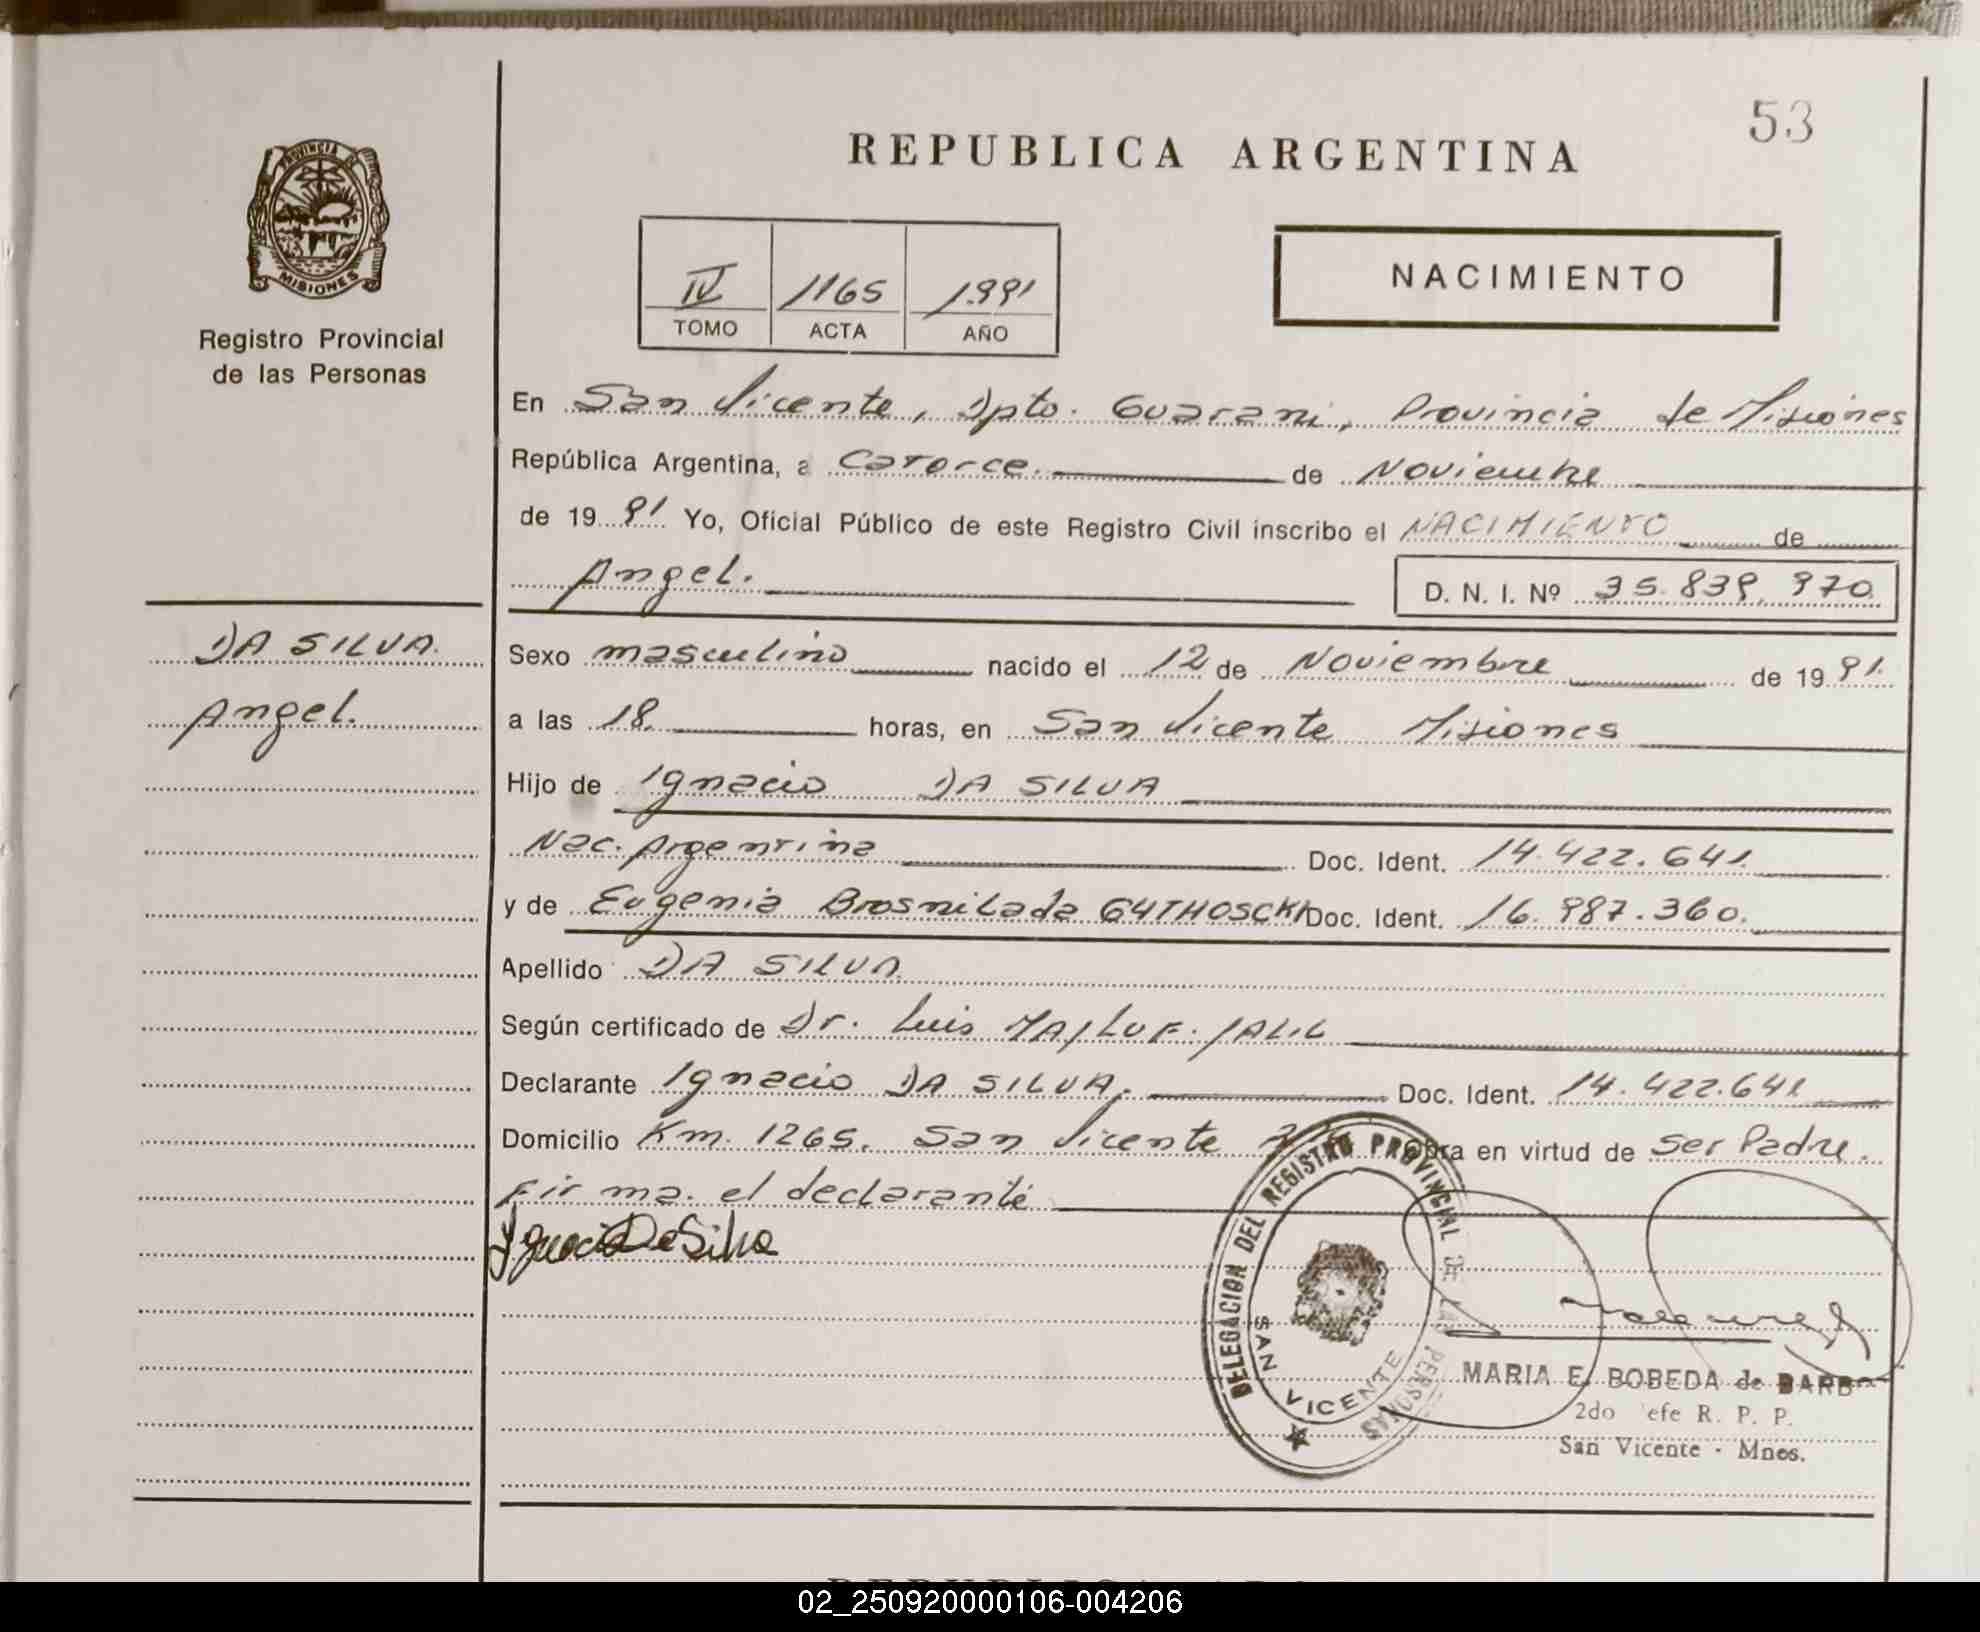 53
REPUBLICA ARGENTINA
PROVINCIA DE
MISIONES
Registro Provincial
de las Personas
IV 1165 1991
TOMO ACTA AÑO
NACIMIENTO
En San Vicente, Dpto. Guarani, Provincia de Misiones
República Argentina, a Catorce. de Noviembre
de 19 91 Yo, Oficial Público de este Registro Civil inscribo el NACIMIENTO de
Angel. D. N. I. Nº 35.839.970
DA SILVA.
Angel.
Sexo masculino nacido el 12 de Noviembre de 19 91.
a las 18. horas, en San Vicente Misiones
Hijo de Ignacio DA SILVA
Nac. Argentina Doc. Ident. 14.422.641.
y de Eugenia Brosnilada GUTHOSCKI Doc. Ident. 16.987.360.
Apellido DA SILVA.
Según certificado de Dr. Luis MAJLUF. JALIL
Declarante Ignacio DA SILVA. Doc. Ident. 14.422.641
Domicilio Km. 1265. San Vicente Obra en virtud de Ser Padre.
Firma. el declarante
Ygnacio Da Silva
DELEGACION DEL REGISTRO PROVINCIAL DE LAS PERSONAS
SAN VICENTE
MARIA E. BOBEDA de BARB
2do efe R. P. P.
San Vicente - Mnes.
02_250920000106-004206